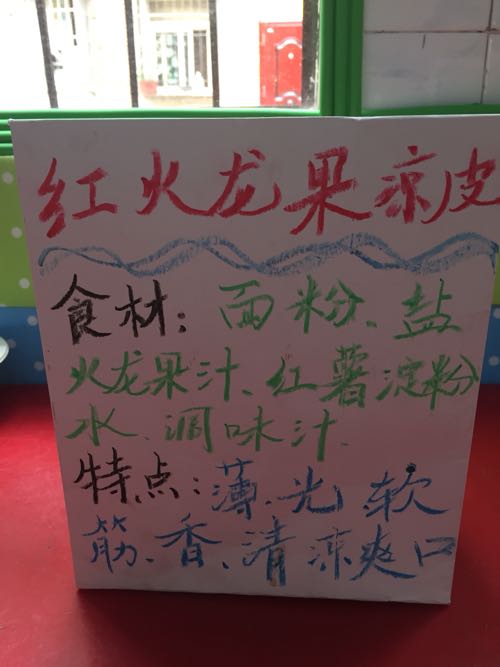 红火龙果凉皮
食材：面粉、盐
火龙果汁、红薯淀粉
水、调味汁
特点：薄、光、软
筋、香、清凉爽口